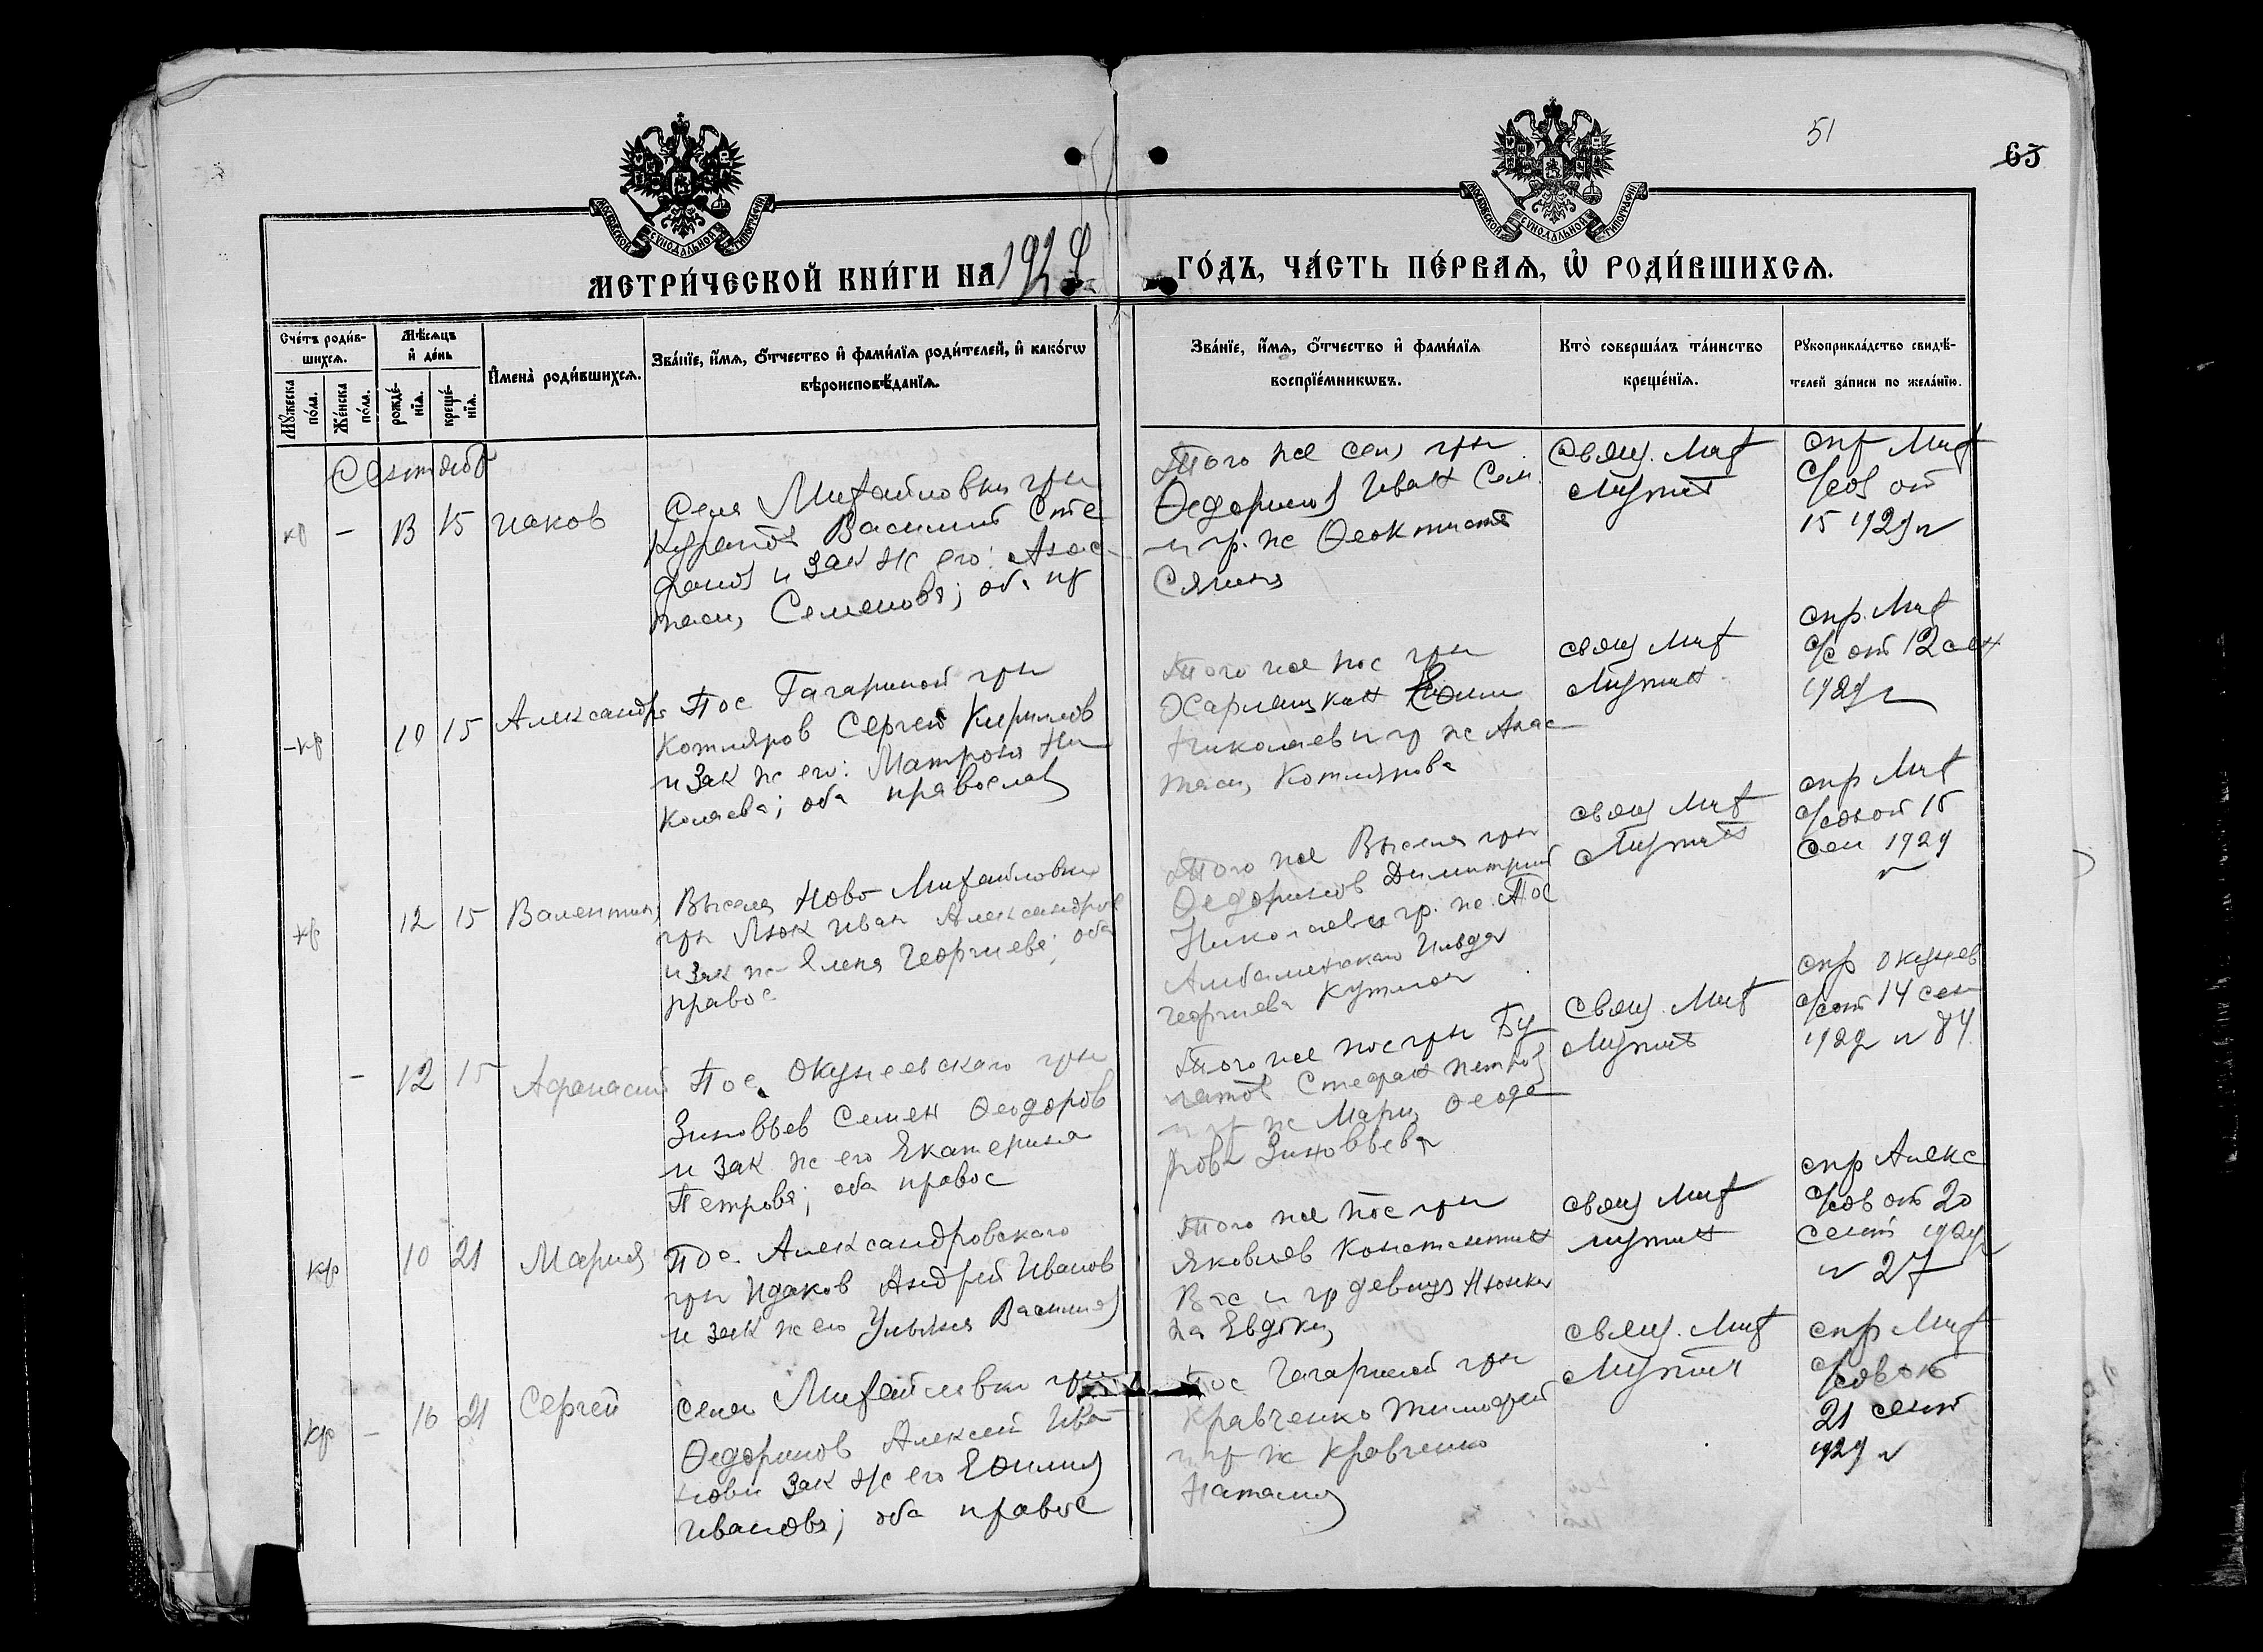 51
65
МОСКОВСКОЙ СѴНОДАЛЬНОЙ ТИПОГРАФІИ
МОСКОВСКОЙ СѴНОДАЛЬНОЙ ТИПОГРАФІИ
МЕТРИ́ЧЕСКОЙ КНИ́ГИ НА 1929
ГО́ДЪ, ЧА́СТЬ ПЕ́РВАѦ, Ѡ҆ РОДИ́ВШИХСѦ.
Сче́тъ роди́в-
шихсѧ.
Мꙋ́жеска
по́ла.
Же́нска
по́ла.
Мѣ́сѧцъ
и҆ де́нь
рожде́-
нїѧ.
креще́-
нїѧ.
И҆мена̀ роди́вшихсѧ.
Зва́нїе, и҆́мѧ, ѻ҆́тчество и҆ фами́лїѧ роди́телей, и҆ како́гѡ
вѣроисповѣ́данїѧ.
Зва́нїе, и҆́мѧ, ѻ҆́тчество и҆ фами́лїѧ
воспрїе́мникѡвъ.
Кто̀ соверша́лъ та́инство
креще́нїѧ.
Рꙋкоприкла́дство свидѣ́-
телей за́писи по жела́нїю.
кр – 13 15 Иаков
Села Михайловки грн
Василий Сте
фанов и зак ж его: Анас
таси, Семенова; оба пр
Того же сел, грн
Федоринов Иван Сем.
и гр. же Феоктиста
свящ. Мих
Лупит
спр Мих
с/сов от
15 1929 №
– кр 10 15 Александра
Пос Гагариной грн
Котляров Сергей Кирилов
и зак ж его: Матрона Ни
колаева; оба православ
Того же пос грн
Николаев и гр же Анас
таси, Котлярова
свящ Мих
Лупит
спр. Мих
с/с от 12 сен
1929 г
кр 12 15 Валентин
Выселка Ново-Михайловки
грн Люк Иван Александров
и зак ж Елена Георгиева; оба
правос
Того же Выселка грн
Федоринов Димитрий
Николаев и гр. же Пос
Георгиева
свящ Мих
Лупит
спр Мих
с/сов от 15
сен 1929
№
– 12 15 Афанасий
Пос. Окунеевского грн
Зиновьев Семен Феодоров
и зак ж его Екатерина
Петрова; оба правос
Того же пос грн Бу
латов Стефан Петров
и гр же Мари, Феодо
рова Зиновьева
Свящ. Мих
Лупит
спр Окунев
с/с от 14 сен
1929 № 84
кр 10 21 Мария
Пос. Александровского
грн Идаков Андрей Иванов
и зак ж его Ульяна Васильев
Того же пос грн
Яковлев Константин
Вас и гр девица
на Евдоки,
свящ Мих
Лупит
спр Алекс
с/сов от 20
сент 1929 г
№ 27
кр – 16 21 Сергей
Села Михайловки грн
Федоринов Алексей Ива
нови зак ж его Ефимия
Иванова; оба правос
Пос Гагариной грн
Кравченко Тимофей
и гр ж Кравченко
Наталия
свящ. Мих
Лупит
спр Мих
с/сов от
21 сент
1929 №